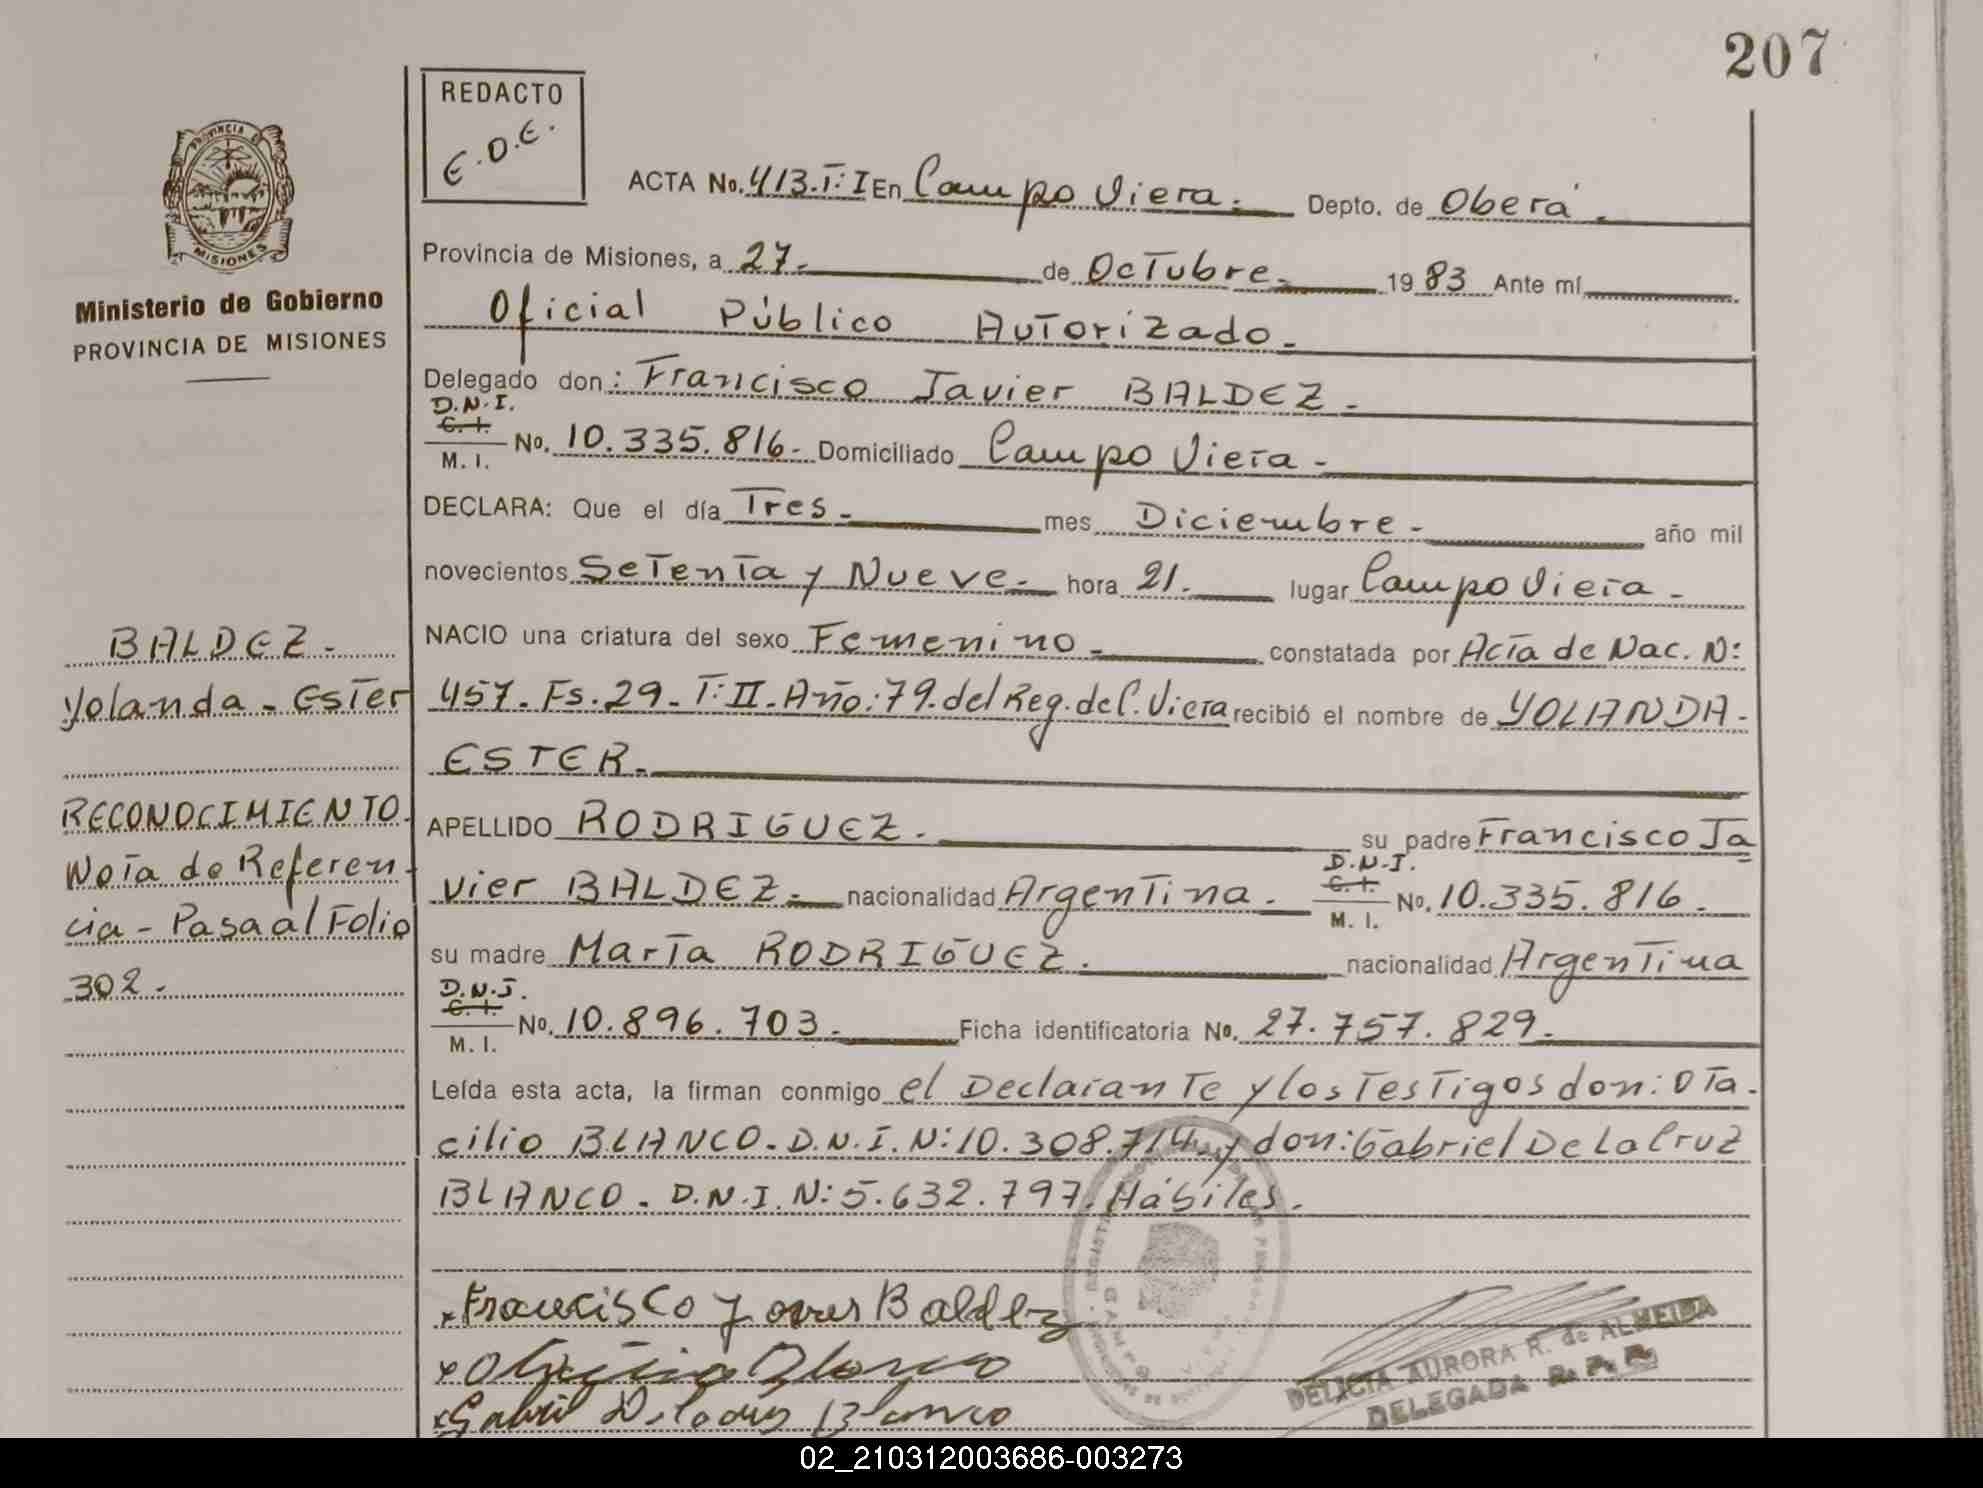 207
REDACTO
E.D.E.
PROVINCIA DE
MISIONES
Ministerio de Gobierno
PROVINCIA DE MISIONES
ACTA No. 413.T:I En Campo Viera. Depto. de Oberá.
Provincia de Misiones, a 27. de Octubre. 1983 Ante mí
Oficial Público Autorizado.
Delegado don: Francisco Javier BALDEZ.
D.N.I.
C. I.
M. I.
No. 10.335.816. Domiciliado Campo Viera -
DECLARA: Que el día Tres. mes Diciembre. año mil
novecientos Setenta y Nueve. hora 21. lugar Campo Viera.
NACIO una criatura del sexo Femenino. constatada por Acta de Nac. Nº
457. Fs. 29. T:II. Año:79. del Reg. de C. Viera recibió el nombre de YOLANDA-
ESTER.
APELLIDO RODRIGUEZ. su padre Francisco Ja
D.N.I.
C. I.
M. I.
vier BALDEZ. nacionalidad Argentina. No. 10.335.816.
su madre María RODRIGUEZ. nacionalidad Argentina
D.N.I.
C. I.
M. I.
No. 10.896.703. Ficha identificatoria No. 27.757.829.
Leída esta acta, la firman conmigo el Declarante y los Testigos don: Ota-
cilio BLANCO. D.N.I. N: 10.308.714. y don: Gabriel De La Cruz
BLANCO. D.N.I. N: 5.632.797. Hábiles.
BALDEZ.
Yolanda - Ester
RECONOCIMIENTO.
Nota de Referen-
cia - Pasa al Folio
302.
x Francisco Javier Baldez
x Blanco
x Gabriel Delacruz Blanco
DELICIA AURORA R. de ALMEIDA
DELEGADA
02_210312003686-003273